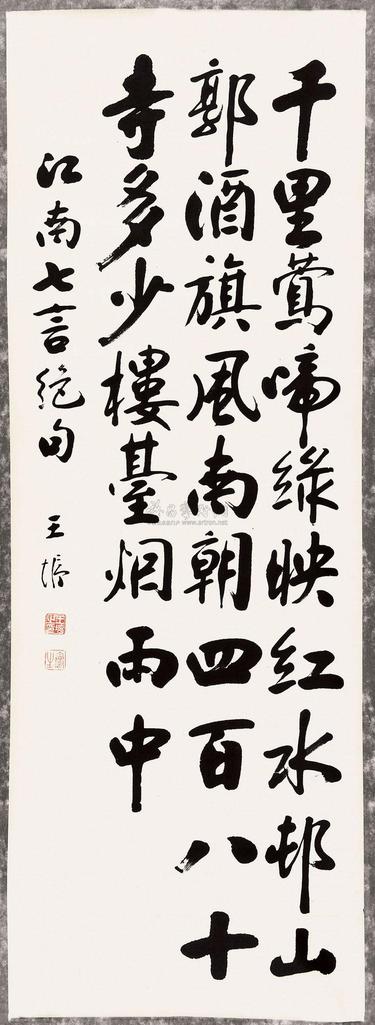 千里莺啼綠映红水邨山
郭酒旗風南朝四百八十
寺多少樓臺烟雨中
江南七言绝句
王
www.artron.net